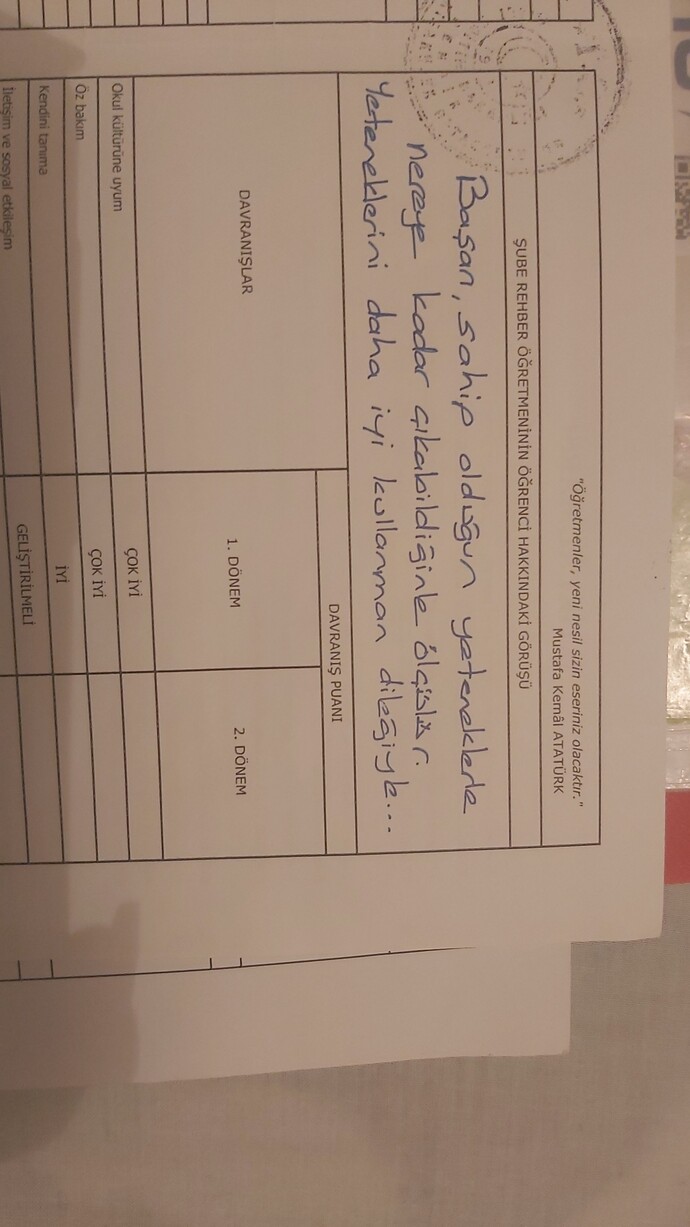 "Öğretmenler, yeni nesil sizin eseriniz olacaktır."
Mustafa Kemâl ATATÜRK
ŞUBE REHBER ÖĞRETMENİNİN ÖĞRENCİ HAKKINDAKİ GÖRÜŞÜ
Başarı, sahip olduğun yeteneklerle
nereye kadar çıkabildiğinle ölçülür.
Yeteneklerini daha iyi kullanman dileğiyle...
DAVRANIŞ PUANI
DAVRANIŞLAR 1. DÖNEM 2. DÖNEM
Okul kültürüne uyum ÇOK İYİ
Öz bakım ÇOK İYİ
Kendini tanıma İYİ
İletişim ve sosyal etkileşim GELİŞTİRİLMELİ